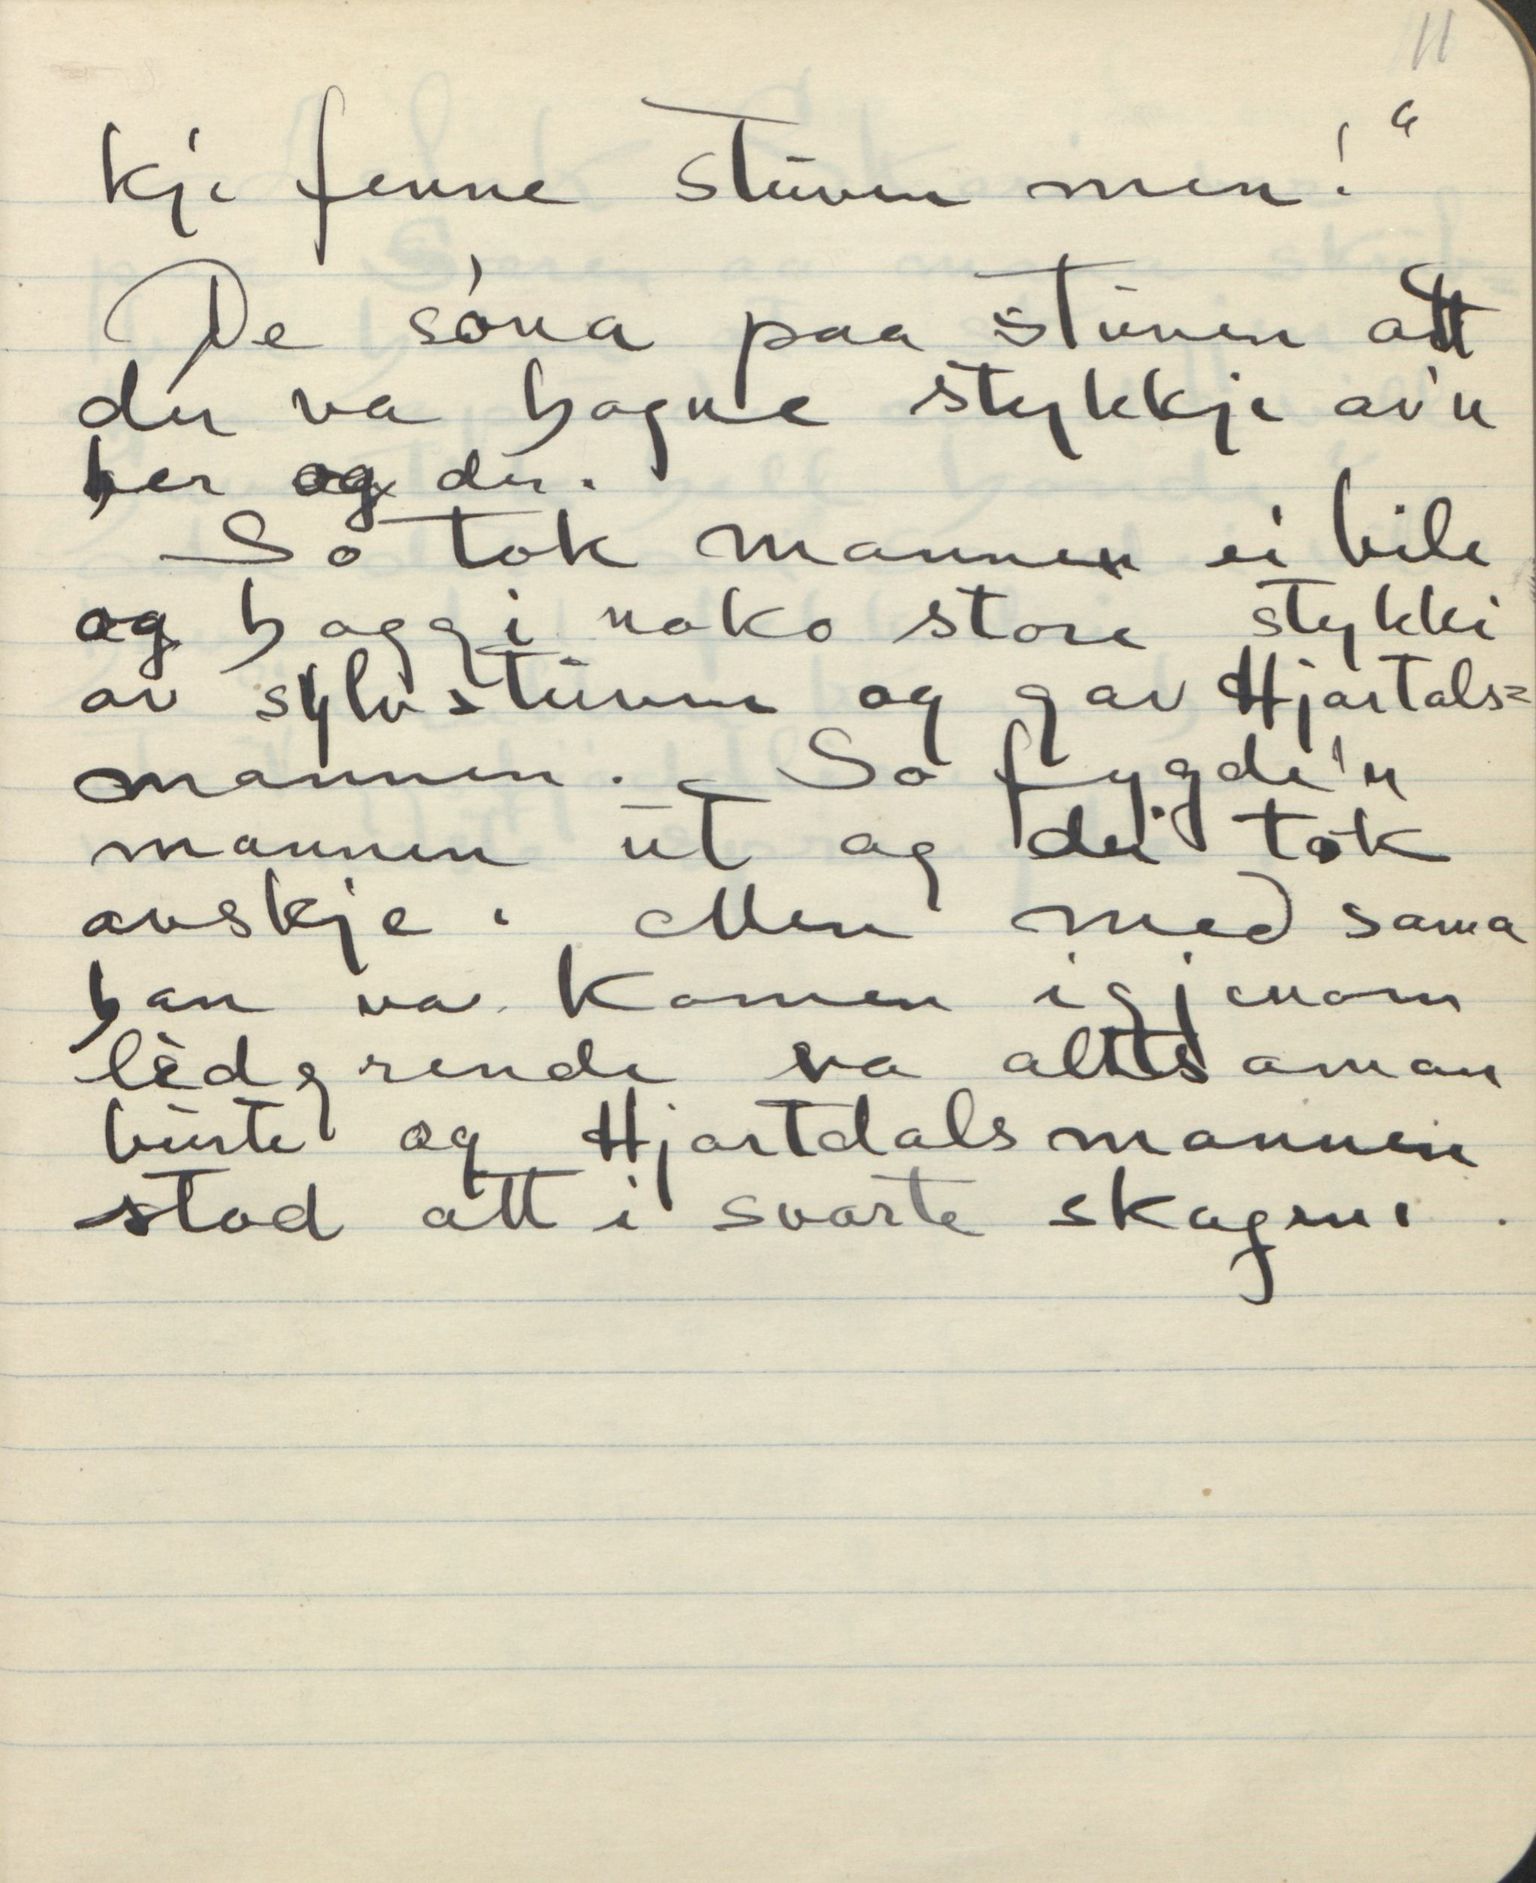 11
kje fenne stuven men!"
De sóna paa stuven att
der va hogne stykkje av'n
her og der.
So tok mannen ei bile
og hoggi noko store stykki
av sylvstuven og gav Hjartals=
mannen. - So fygde'n
mannen ut og dei tok
avskje. Men med sama
han va komen igjenom
lèdgrende va altsaman
burte og Hjartdalsmannen
stod att i svarte skogene.